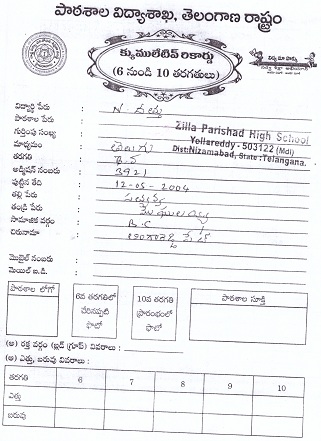 పాఠశాల విద్యాశాఖ, తెలంగాణ రాష్ట్రం
క్యుములేటివ్ రికార్డు
(6 నుండి 10 తరగతులు)
విద్యార్థి పేరు :
పాఠశాల పేరు : Zilla Parishad High School
Yellareddy - 503122 (Mdl)
Dist: Nizamabad, State : Telangana.
గుర్తింపు సంఖ్య :
మాధ్యమం : తెలుగు
తరగతి :
అడ్మిషన్ నంబరు : 3921
పుట్టిన తేది : 12-05-2004
తల్లి పేరు :
తండ్రి పేరు :
సామాజిక వర్గం : B.C
చిరునామా :
మొబైల్ నంబరు :
మెయిల్ ఐ.డి. :
పాఠశాల లోగో
6వ తరగతిలో చేరినప్పటి ఫొటో
10వ తరగతి ప్రారంభంలో ఫొటో
పాఠశాల సూక్తి
(అ) రక్త వర్గం (బ్లడ్ గ్రూప్) వివరాలు :
(ఆ) ఎత్తు, బరువు వివరాలు :
తరగతి 6 7 8 9 10
ఎత్తు
బరువు